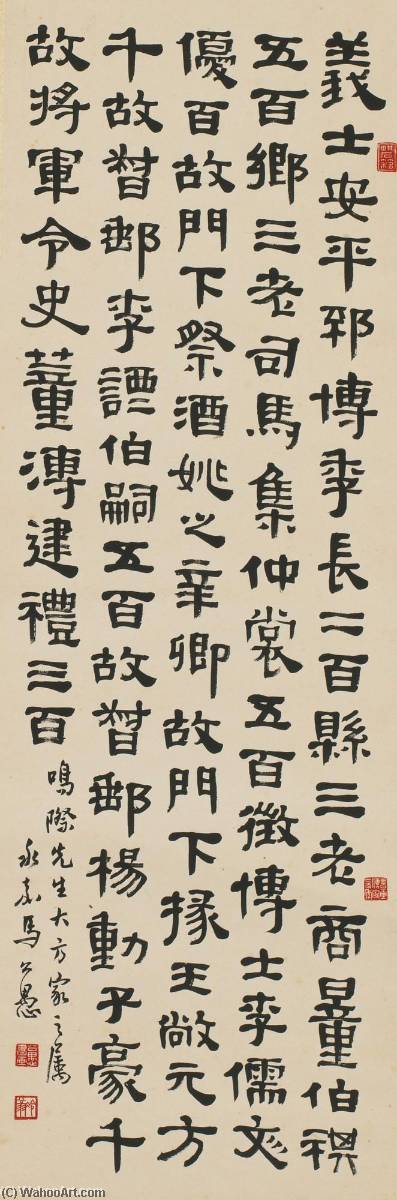 義士安平祁博季長二百縣三老商量伯祺
五百鄉三老司馬集仲裳五百徵博士李儒文
優百故門下祭酒姚之辛卿故門下掾王敞元方
千故督郵李諲伯嗣五百故督郵楊動子豪千
故將軍令史董溥建禮三百
鳴際先生大方家之屬
永嘉馬公愚
(C) WahooArt.com